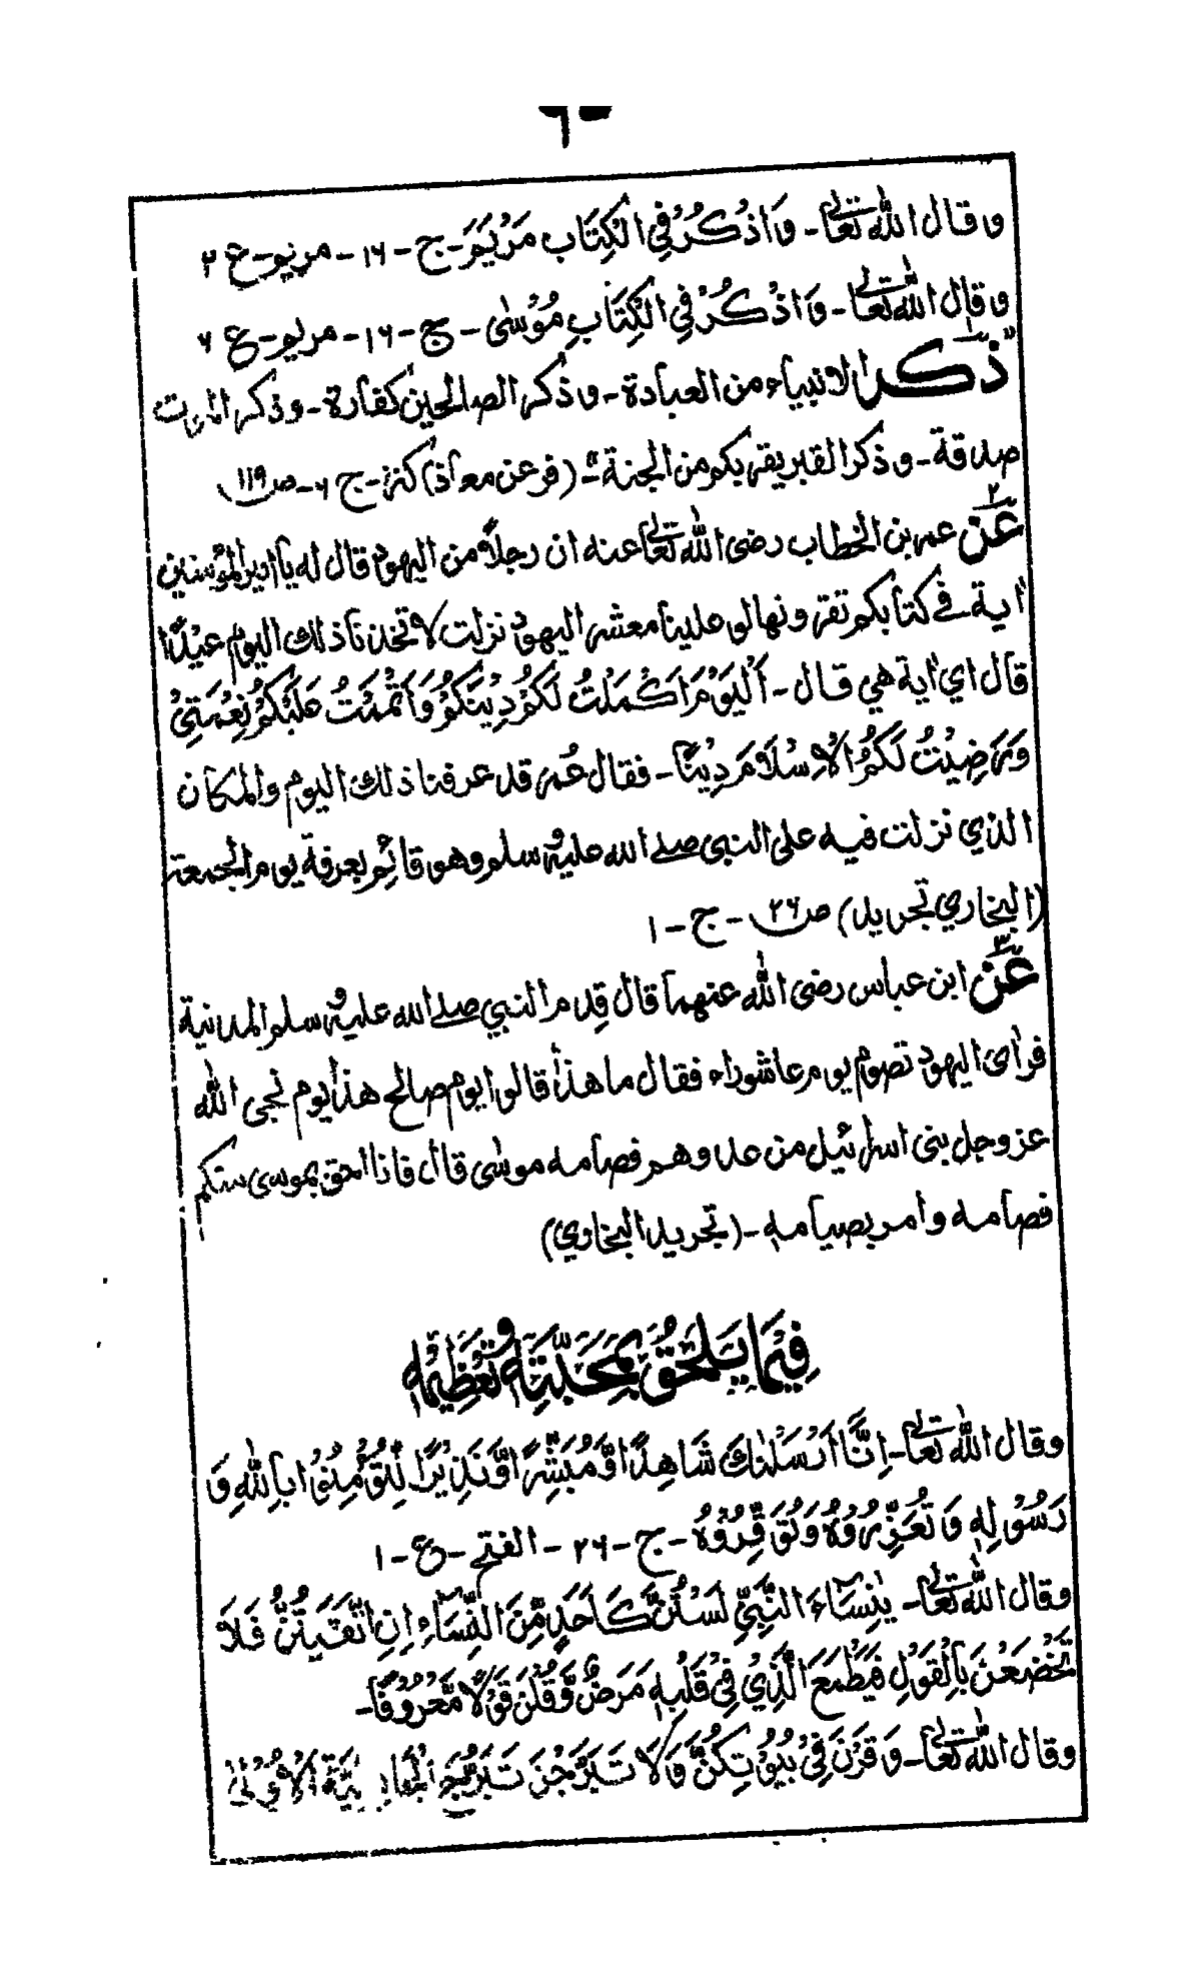 وقال الله تعالى - وَاذْكُرْ فِي الْكِتَابِ مَرْيَمَ - ج - ١٦ - مريم - ع ٢
وقال الله تعالى - وَاذْكُرْ فِي الْكِتَابِ مُوْسٰى - ج - ١٦ - مريم - ع ٤
"ذكر الانبياء من العبادة - وذكر الصالحين كفارة - وذكر الموت
صدقة - وذكر القبر يقربكم من الجنة" - (فر عن معاذ) كنز - ج ٦ - ص ١١٩
عن عمر بن الخطاب رضى الله تعالى عنه ان رجلاً من اليهود قال له يا امير المؤمنين
اية فے كتابكم تقرءونها لو علينا معشر اليهود نزلت لاتخذنا ذلك اليوم عيدًا
قال اي اية هي قال - اَلْيَوْمَ اَكْمَلْتُ لَكُمْ دِيْنَكُمْ وَاَتْمَمْتُ عَلَيْكُمْ نِعْمَتِيْ
وَرَضِيْتُ لَكُمُ الْاِسْلَامَ دِيْنًا - فقال عُمر قد عرفنا ذلك اليوم والمكان
الذي نزلت فيه على النبى صلے الله عليه وسلم وهو قائم بعرفة يوم الجمعة
(البخاري تجريد) ص ٢٦ - ج - ١
عن ابن عباس رضى الله عنهما قال قدم النبي صلے الله عليه وسلم المدنية
فرأى اليهود تصوم يوم عاشوراء فقال ما هذا قالوا يوم صالح هذا يوم نجى الله
عز وجل بنى اسرائيل من عدوهم فصامه موسٰى قال فانا احق بموسى منكم
فصامه وامر بصيامه - (تجريد البخاري)
فِيْمَا يَلْحَقُ بِمَحَبَّتِهٖ وَتَعْظِيْمِهٖ
وقال الله تعالى - اِنَّا اَرْسَلْنٰكَ شَاهِدًا وَّمُبَشِّرًا وَّنَذِيْرًا لِّتُؤْمِنُوْا بِاللّٰهِ وَ
رَسُوْلِهٖ وَتُعَزِّرُوْهُ وَتُوَقِّرُوْهُ - ج - ٢٦ - الفتح - ع - ١
وقال الله تعالى - يٰنِسَآءَ النَّبِيِّ لَسْتُنَّ كَاَحَدٍ مِّنَ النِّسَآءِ اِنِ اتَّقَيْتُنَّ فَلَا
تَخْضَعْنَ بِالْقَوْلِ فَيَطْمَعَ الَّذِيْ فِيْ قَلْبِهٖ مَرَضٌ وَّقُلْنَ قَوْلًا مَّعْرُوْفًا -
وقال الله تعالى - وَقَرْنَ فِيْ بُيُوْتِكُنَّ وَلَا تَبَرَّجْنَ تَبَرُّجَ الْجَاهِلِيَّةِ الْاُوْلٰى